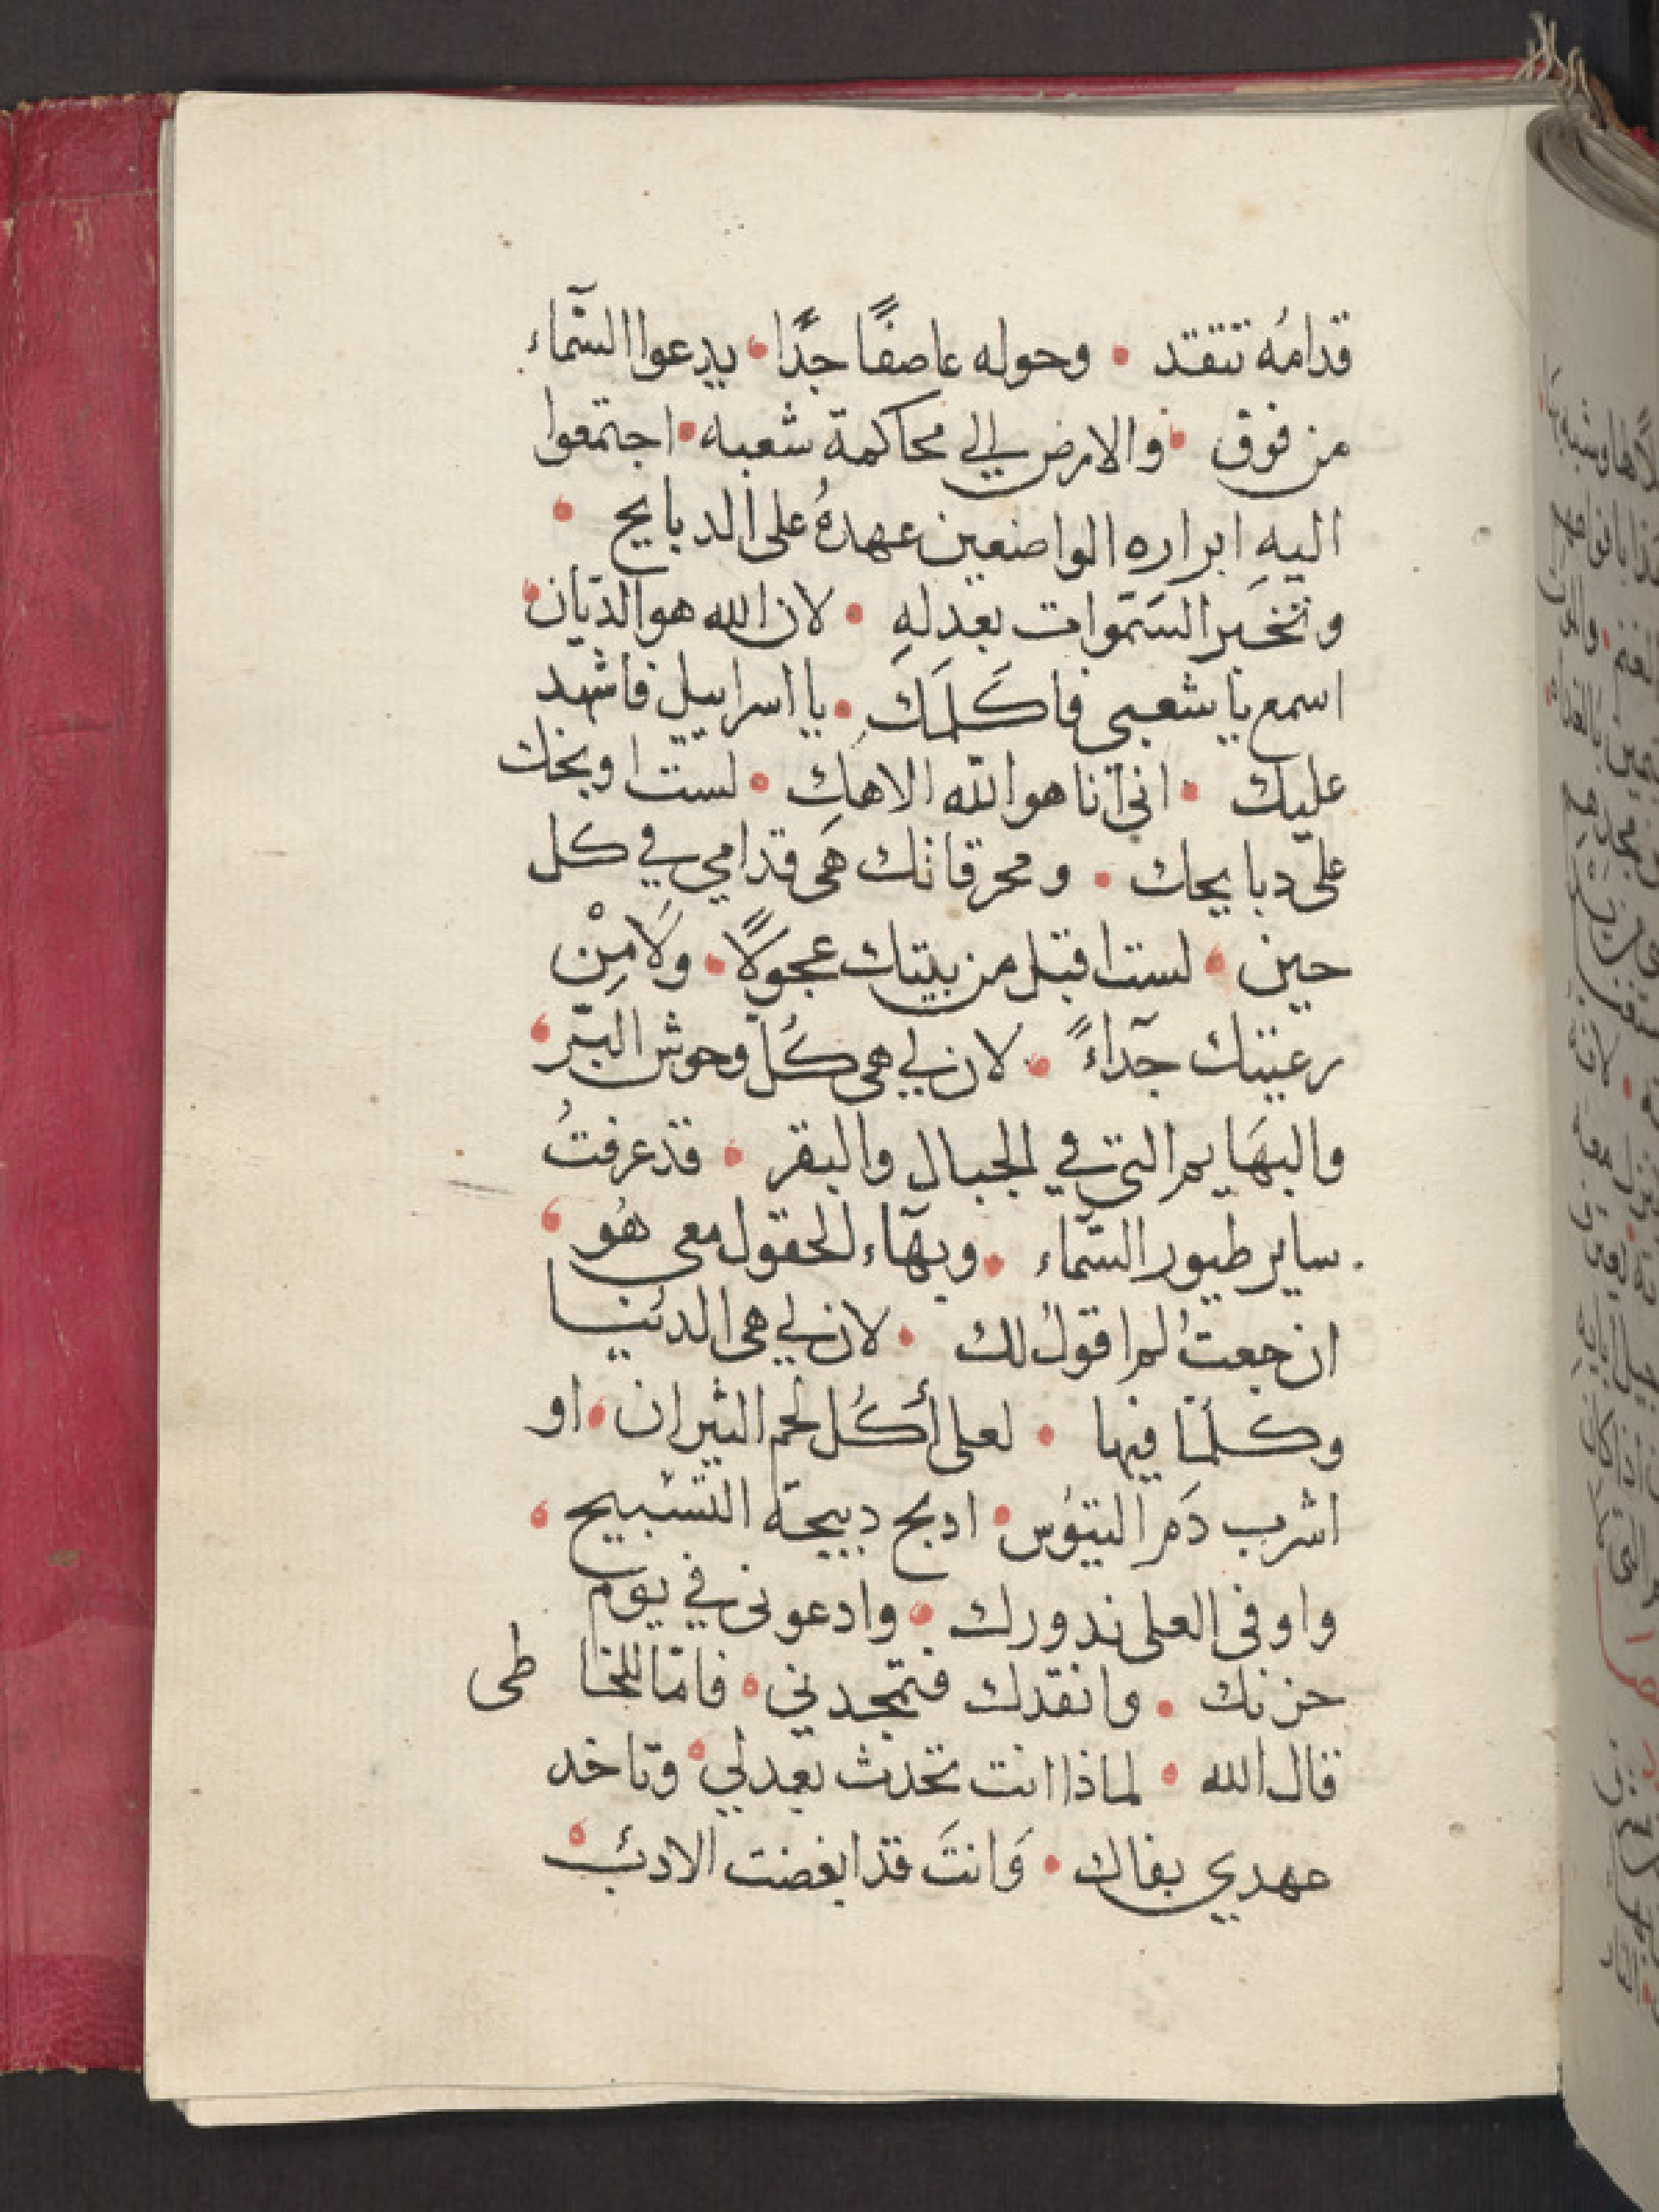 قدامُه تتقد • وحوله عاصفًا جدًا • يدعوا السّماء
من فوق • والارض لي الي محاكمة شعبه • اجتمعوا
اليهِ ابراره الواضعين عهدهُ على الدبايح •
وتخبر السّموات بعدلهِ • لان الله هو الديان •
اسمع يا شعبي فاكَلمَكَ • يا اسراييل فاشهد
عليك • اني انا هو الله الاهك • لست اوبخك
على دبايحك • ومحرقاتك هى قدامي في كل
حين • لست اقبل من بيتك عجولًا • ولَا مِنْ
رعيتك جدآءً • لان لي هى كُل وحوش البّر •
والبهَايم التي في الجبال والبقر • قد عرفتُ
ساير طيور السّماء • وبهآء الحقول معي هُو •
ان جعتُ لم اقول لك • لان لي هى الدنيا
وكلمَا فيها • لعلى أكُل لحم الثيران • او
اشرب دَم التيوس • ادبح دبيحة التسبيح •
واوفى العلى ندورك • وادعونى في يوم
حزنك • وانقدك فتمجدني • فامّا للخا طى
قال الله • لماذا انت تحدث بعدلي • وتاخد
عهدي بفاك • وَانتَ قد ابغضت الادب •